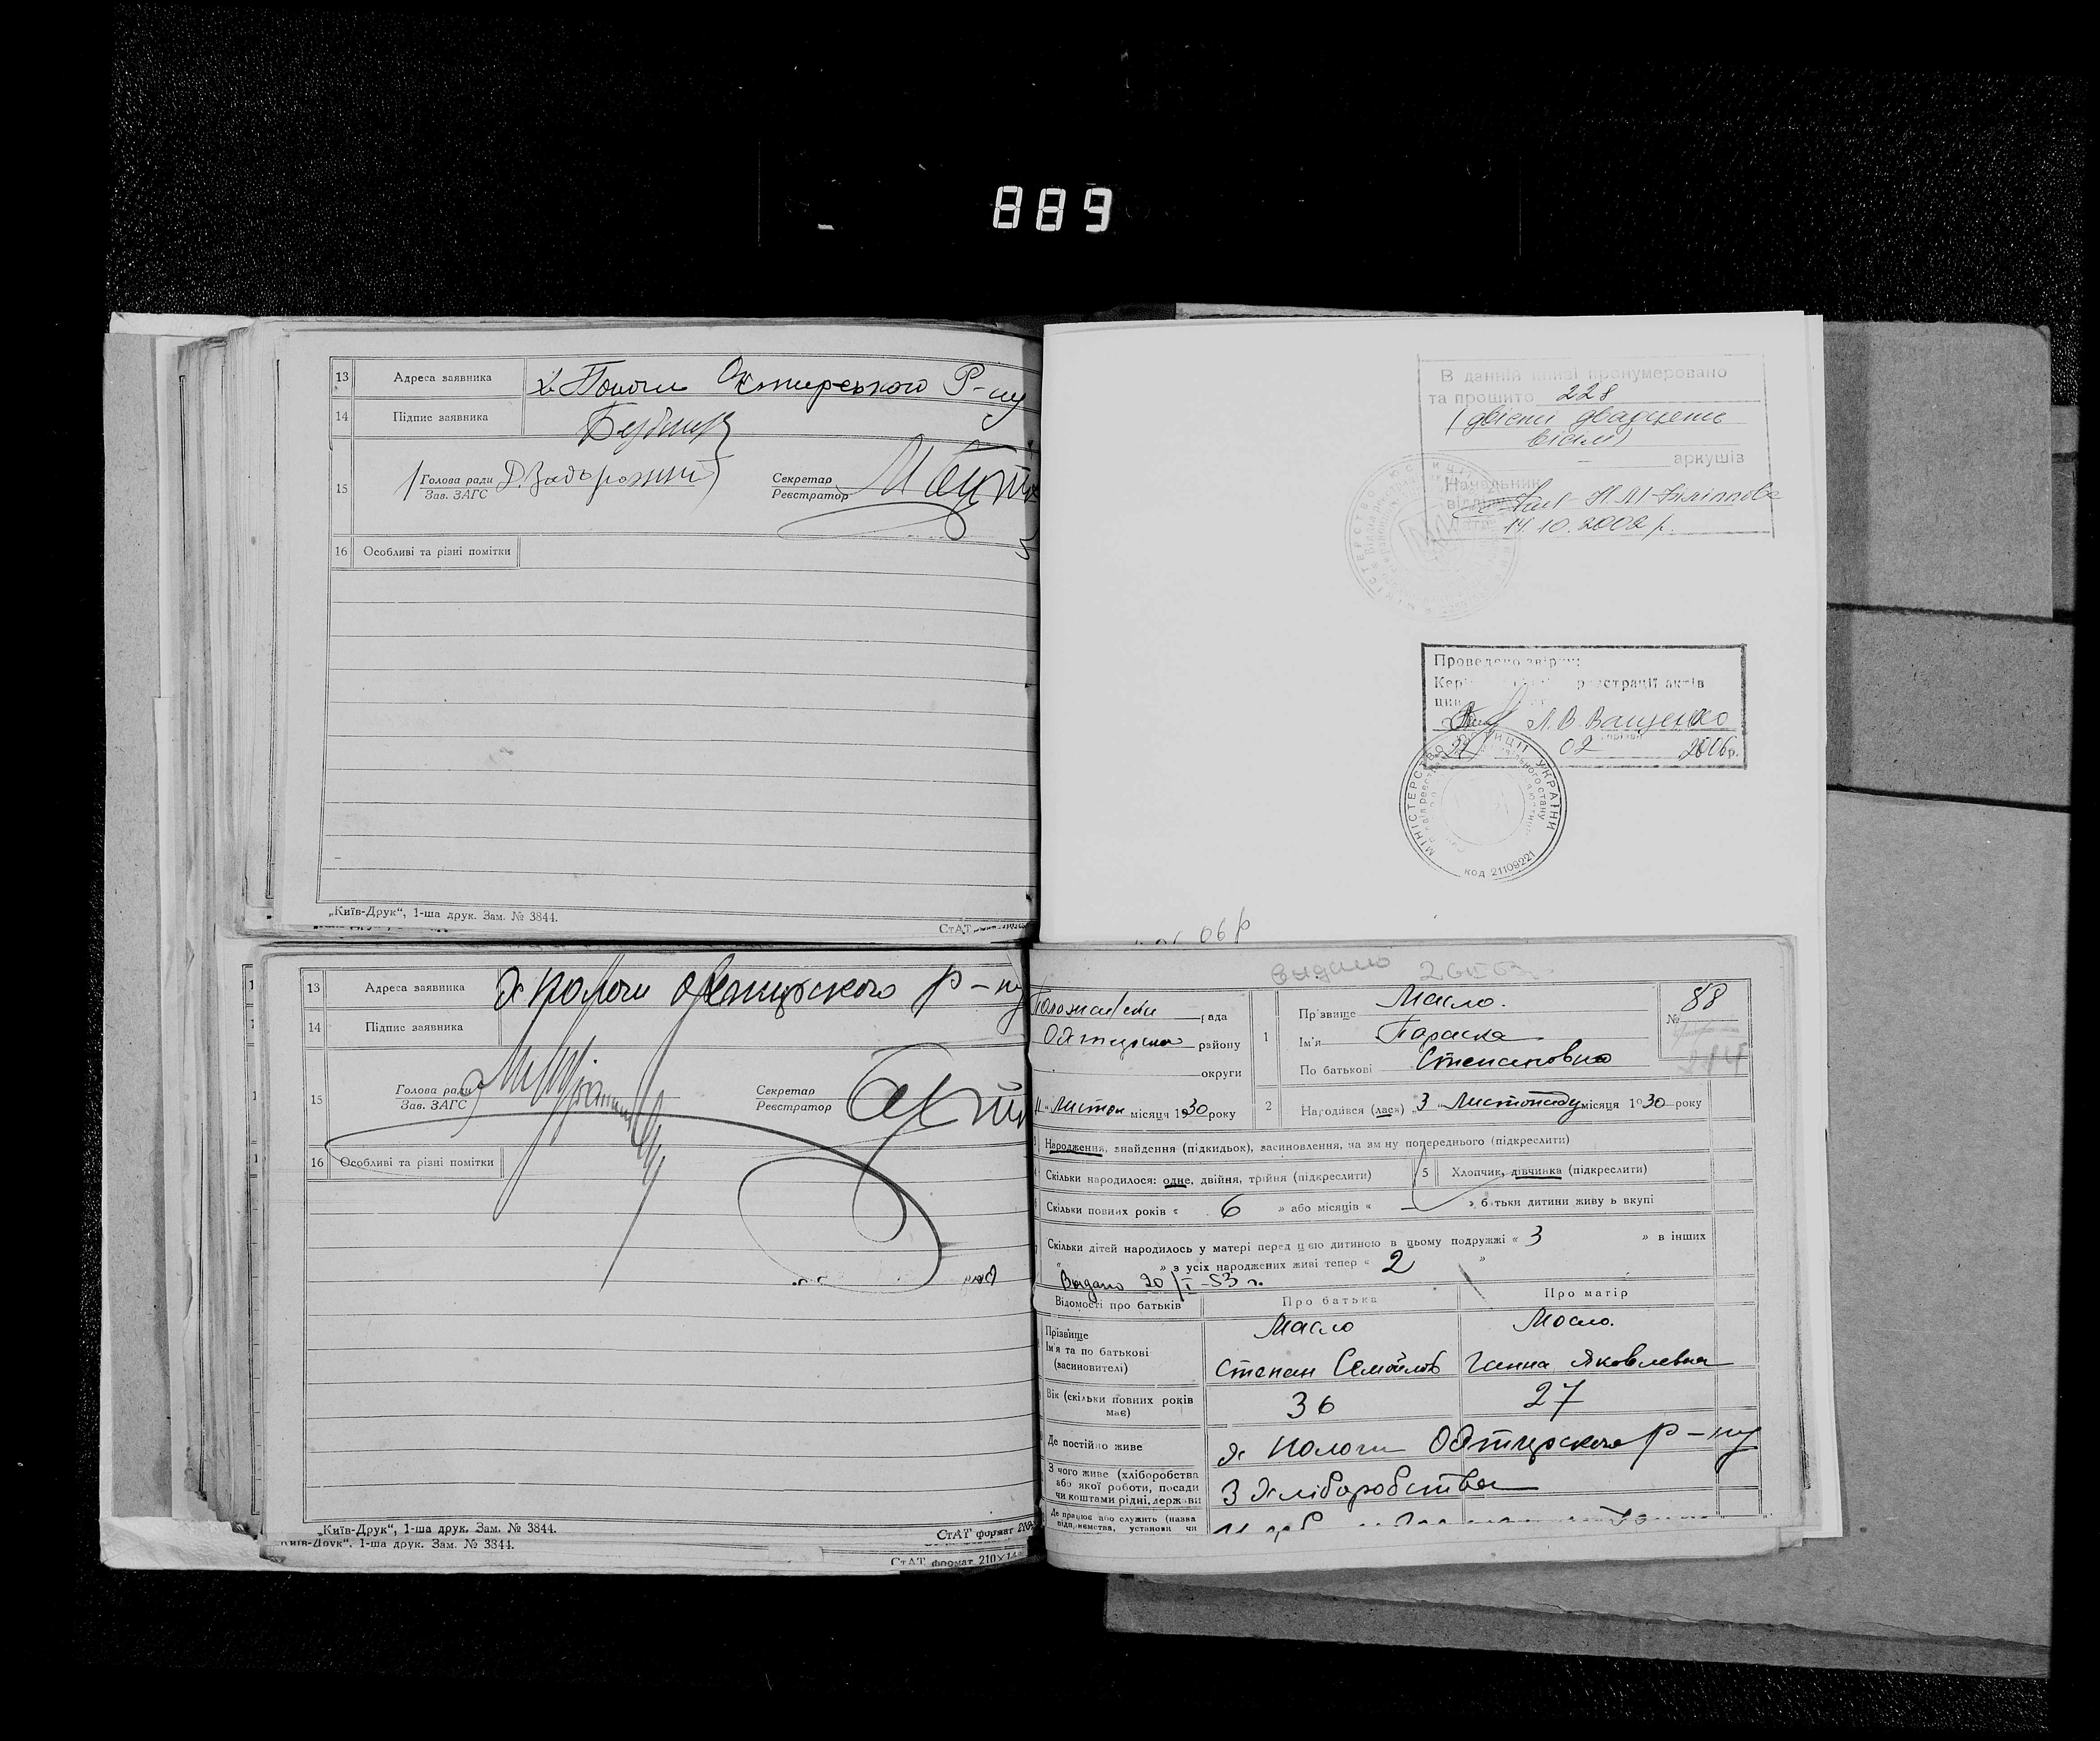 889
13 Адреса заявника х. Пологи Охтирського Р-ну
14 Підпис заявника
15 Голова ради Зав. ЗАГС Д. Задорожний Секретар Реєстратор
16 Особливі та різні помітки
„Київ-Друк“, 1-ша друк. Зам. № 3844.
СтАТ
В данній книзі пронумеровано
та прошито 228
(двісти двадцять
вісім)
аркушів
Начальник
відділу
14.10.2002 р.
Проведено звірку:
реєстрації актів
Л.В. Ващенко
22 02 2006р.
МІНІСТЕРСТВО ЮСТИЦІЇ УКРАЇНИ
код 21109221
06 р
13 Адреса заявника х Пологи Охтирського р-ну
14 Підпис заявника
15 Голова ради Зав. ЗАГС Секретар Реєстратор
16 Особливі та різні помітки
„Київ-Друк“, 1-ша друк. Зам. № 3844.
СтАТ формат
Київ-Друк“, 1-ша друк. Зам. № 3844.
СтАТ формат 210×14
видано
рада
району
округи
Листоп місяця 1930 року
1 Прізвище Масло.
Ім'я Параска
По батькові Степановна
№ 88
2 Народився (лася) „3 „Листопаду місяця 1930 року
Народження, знайдення (підкидьок), васиновлення, на зміну попереднього (підкреслити)
Скільки народилося: одне, двійня, трійня (підкреслити)
5 Хлопчик, дівчинка (підкреслити)
Скільки повних років « 6 » або місяців « — » батьки дитини живуть вкупі
Скільки дітей народилось у матері перед цією дитиною в цьому подружжі « 3 » в інших
« » з усіх народжених живі тепер « 2 »
Видано 20/I-53 г.
Відомості про батьків Про батька Про матір
Прізвище Масло Масло.
Ім'я та по батькові (васиновителі) Степан Самойлов Ганна Яковлевна
Вік (скільки повних років має) 36 27
Де постійно живе х Пологи Охтирского р-ну
З чого живе (хліборобства або якої роботи, посади чи коштами рідні, держави З хліборобства
Де працює або служить (назва підприємства, установи чи